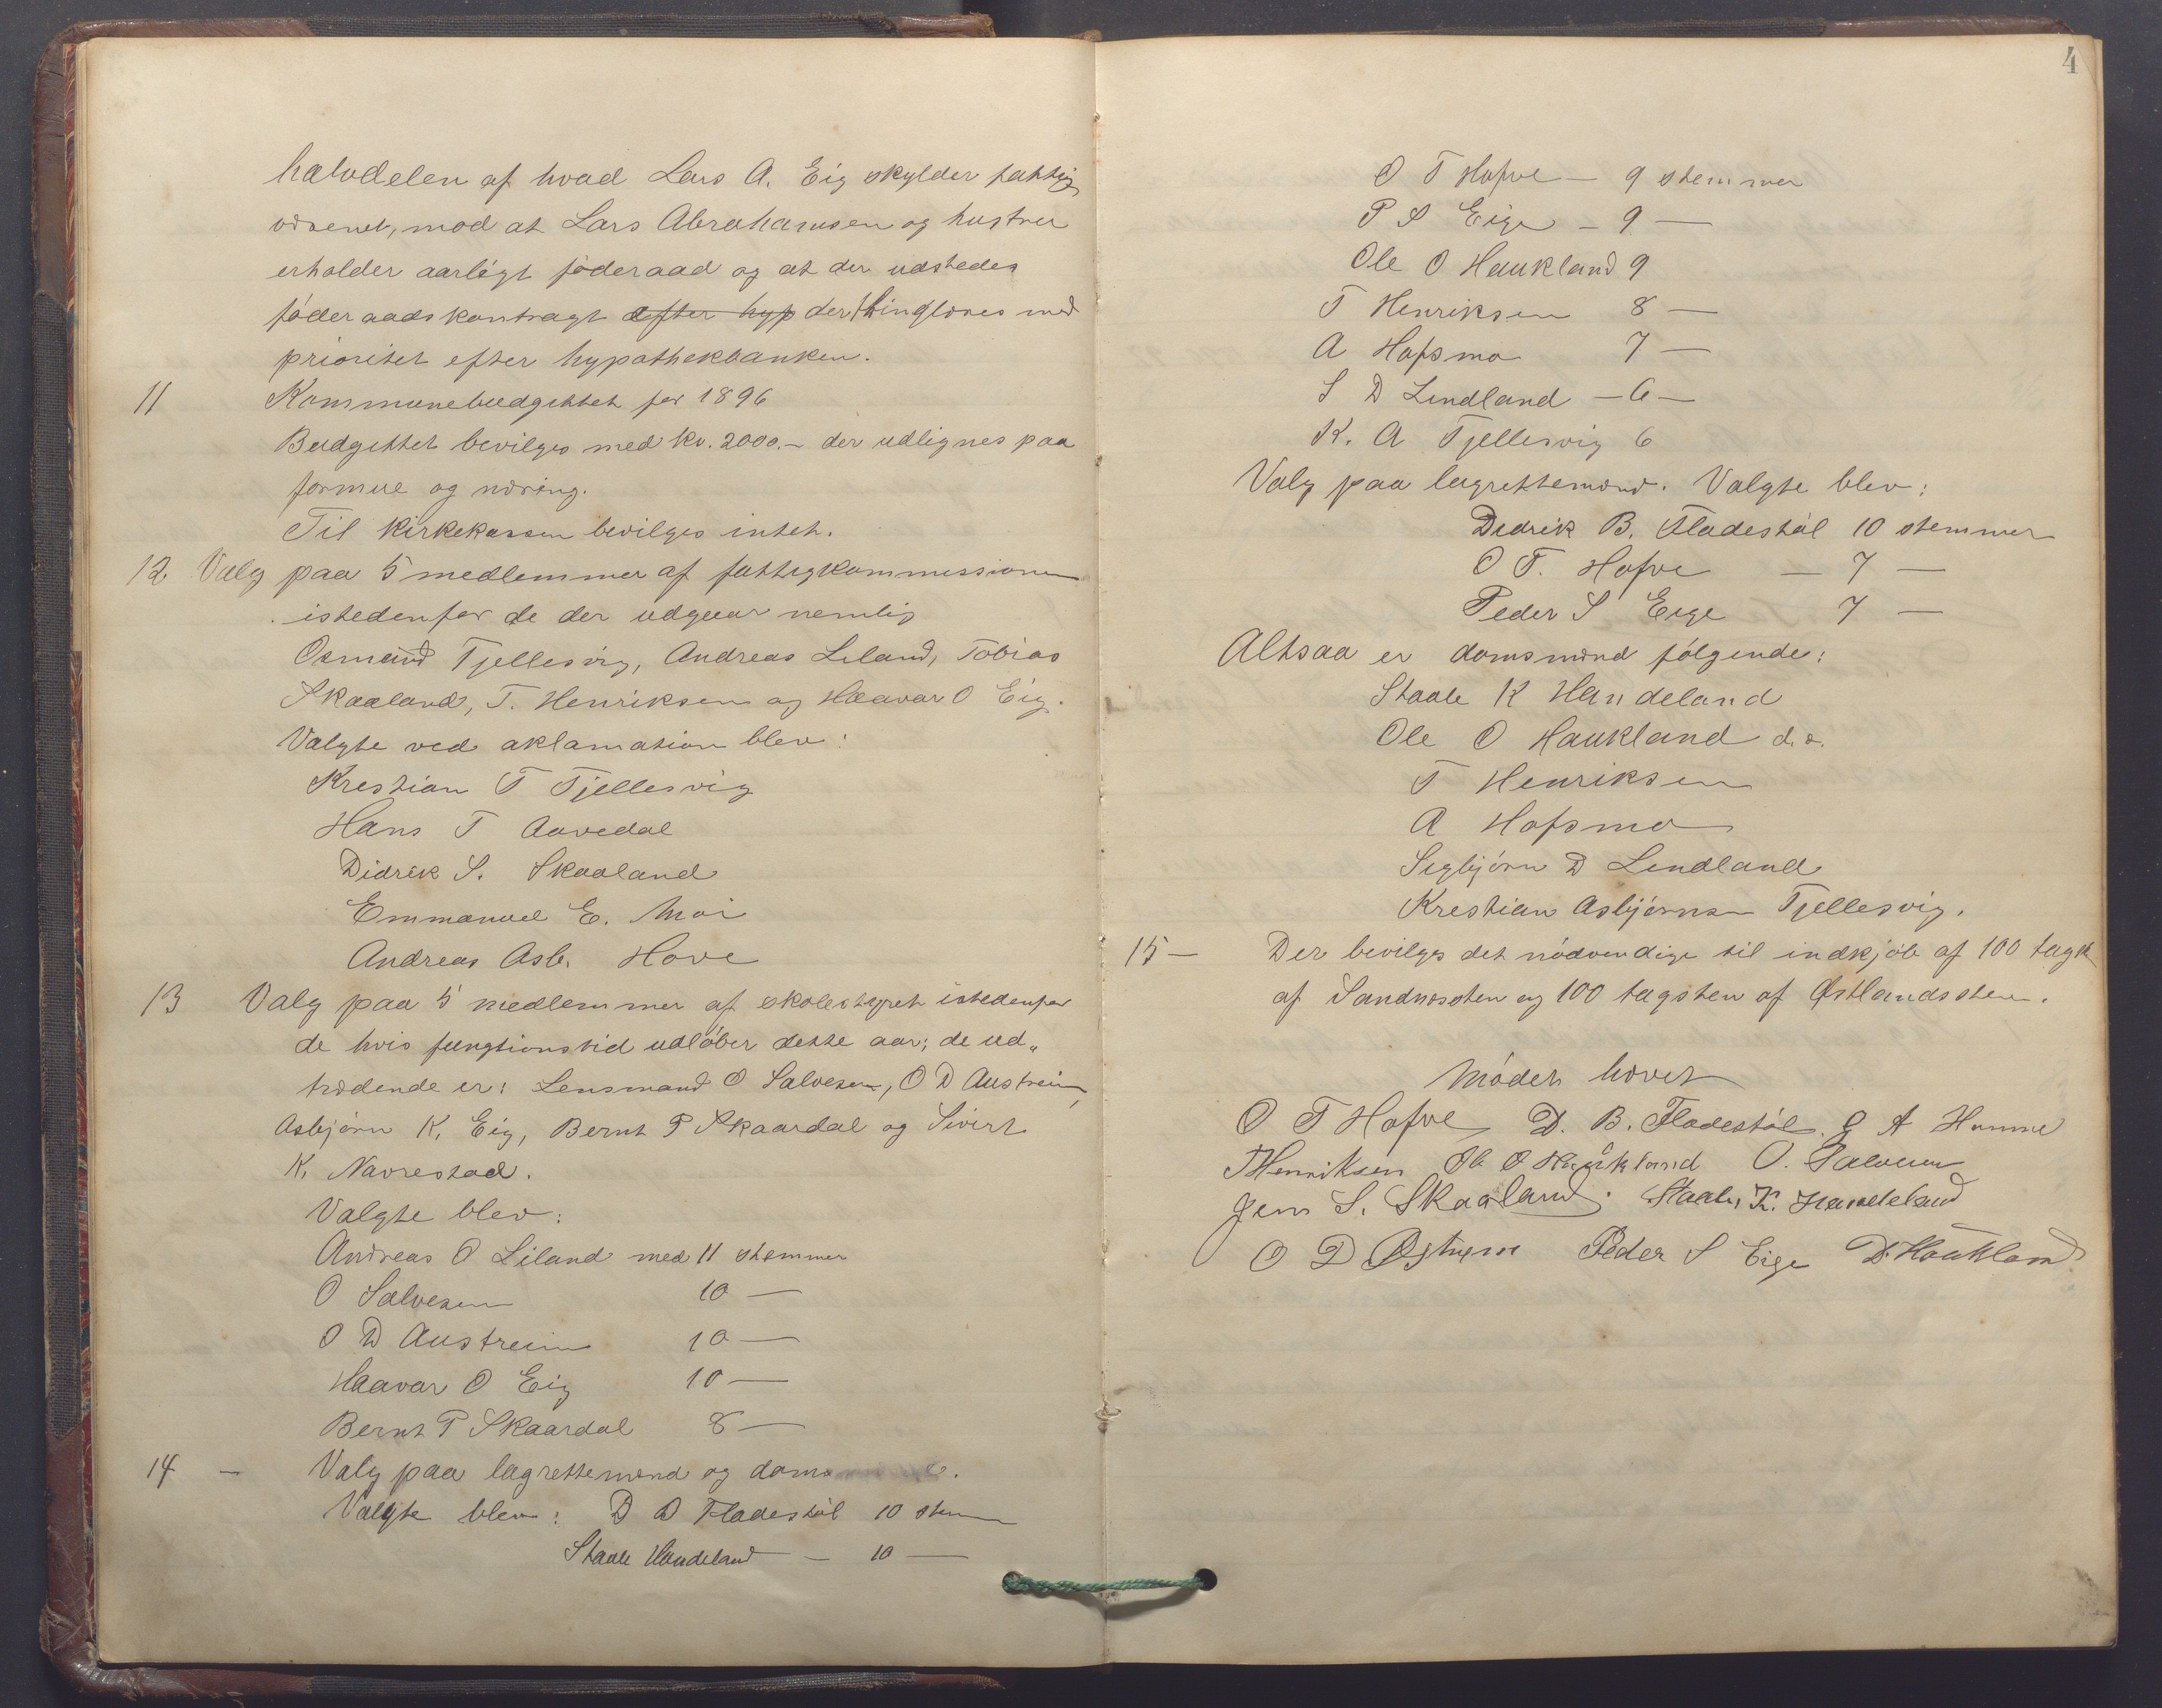 halvdelen af hvad Lars A. Eig skylder fattig
væsenet, mod at Lars Abrahamsen og hustru
erholder aarligt föderaad og at der udstedes
föderaadskontragt efter hyp der thinglæses med
prioritet efter hypothekbanken.
11 Kommunebudgettet for 1896
Budgettet bevilges med kr. 2000.- der udlignes paa
formue og næring.
Til Kirkekassen bevilges intet.
12 Valg paa 5 medlemmer af fattigkommissionen
istedenfor de der udgaar nemlig
Osmund Tjellesvig, Andreas Liland, Tobias
Skaaland, T. Henriksen og Haavar O Eig.
Valgte ved aklamation blev:
Krestian T Tjellesvig
Hans T Aavedal
Didrik S. Skaaland
Emmanuel E. Moi
Andreas Asb. Hove
13 Valg paa 5 medlemmer af skolestyret istedenfor
de hvis fungtionstid udlöber dette aar; de ud„
trædende er: Lensmand O Salvesen, O D Austreim,
Asbjörn K. Eig, Bernt P Skaardal og Sivert
K. Navrestad.
Valgte blev:
Andreas O Liland med 11 stemmer
O Salvesen 10 —
O D Austreim 10 —
Haavar O Eig 10 —
Bernt P Skaardal 8 —
14 — Valg paa lagrettemænd og doms
Valgte blev: D B Fladestöl 10 stem
Staale Handeland — 10 —
4
O T Hofve — 9 stemmer
P S Eige — 9 —
Ole O Haukland 9
T Henriksen 8 —
A Hofsmo 7 —
S D Lindland — 6 —
K. A Tjellesvig 6
Valg paa lagrettemænd. Valgte blev:
Didrik B. Fladestöl 10 stemmer
O T. Hofve — 7 —
Peder S Eige 7 —
Altsaa er domsmænd fölgende:
Staale K Handeland
Ole O Haukland d. æ.
T Henriksen
A Hofsmo
Sigbjörn D Lindland
Krestian Asbjörnsen Tjellesvig.
15 — Der bevilges det nödvendige til indkjöb af 100 tagst
af Sandnessten og 100 tagsten af Østlandssten.
Mödet hævet
O T Hofve D. B. Fladestöl. G A Homme
T Henriksen Ole O Haukland O. Salvesen
Jens S. Skaaland. Staale K. Handeland
O D Østrem Peder S Eige D. Haukland